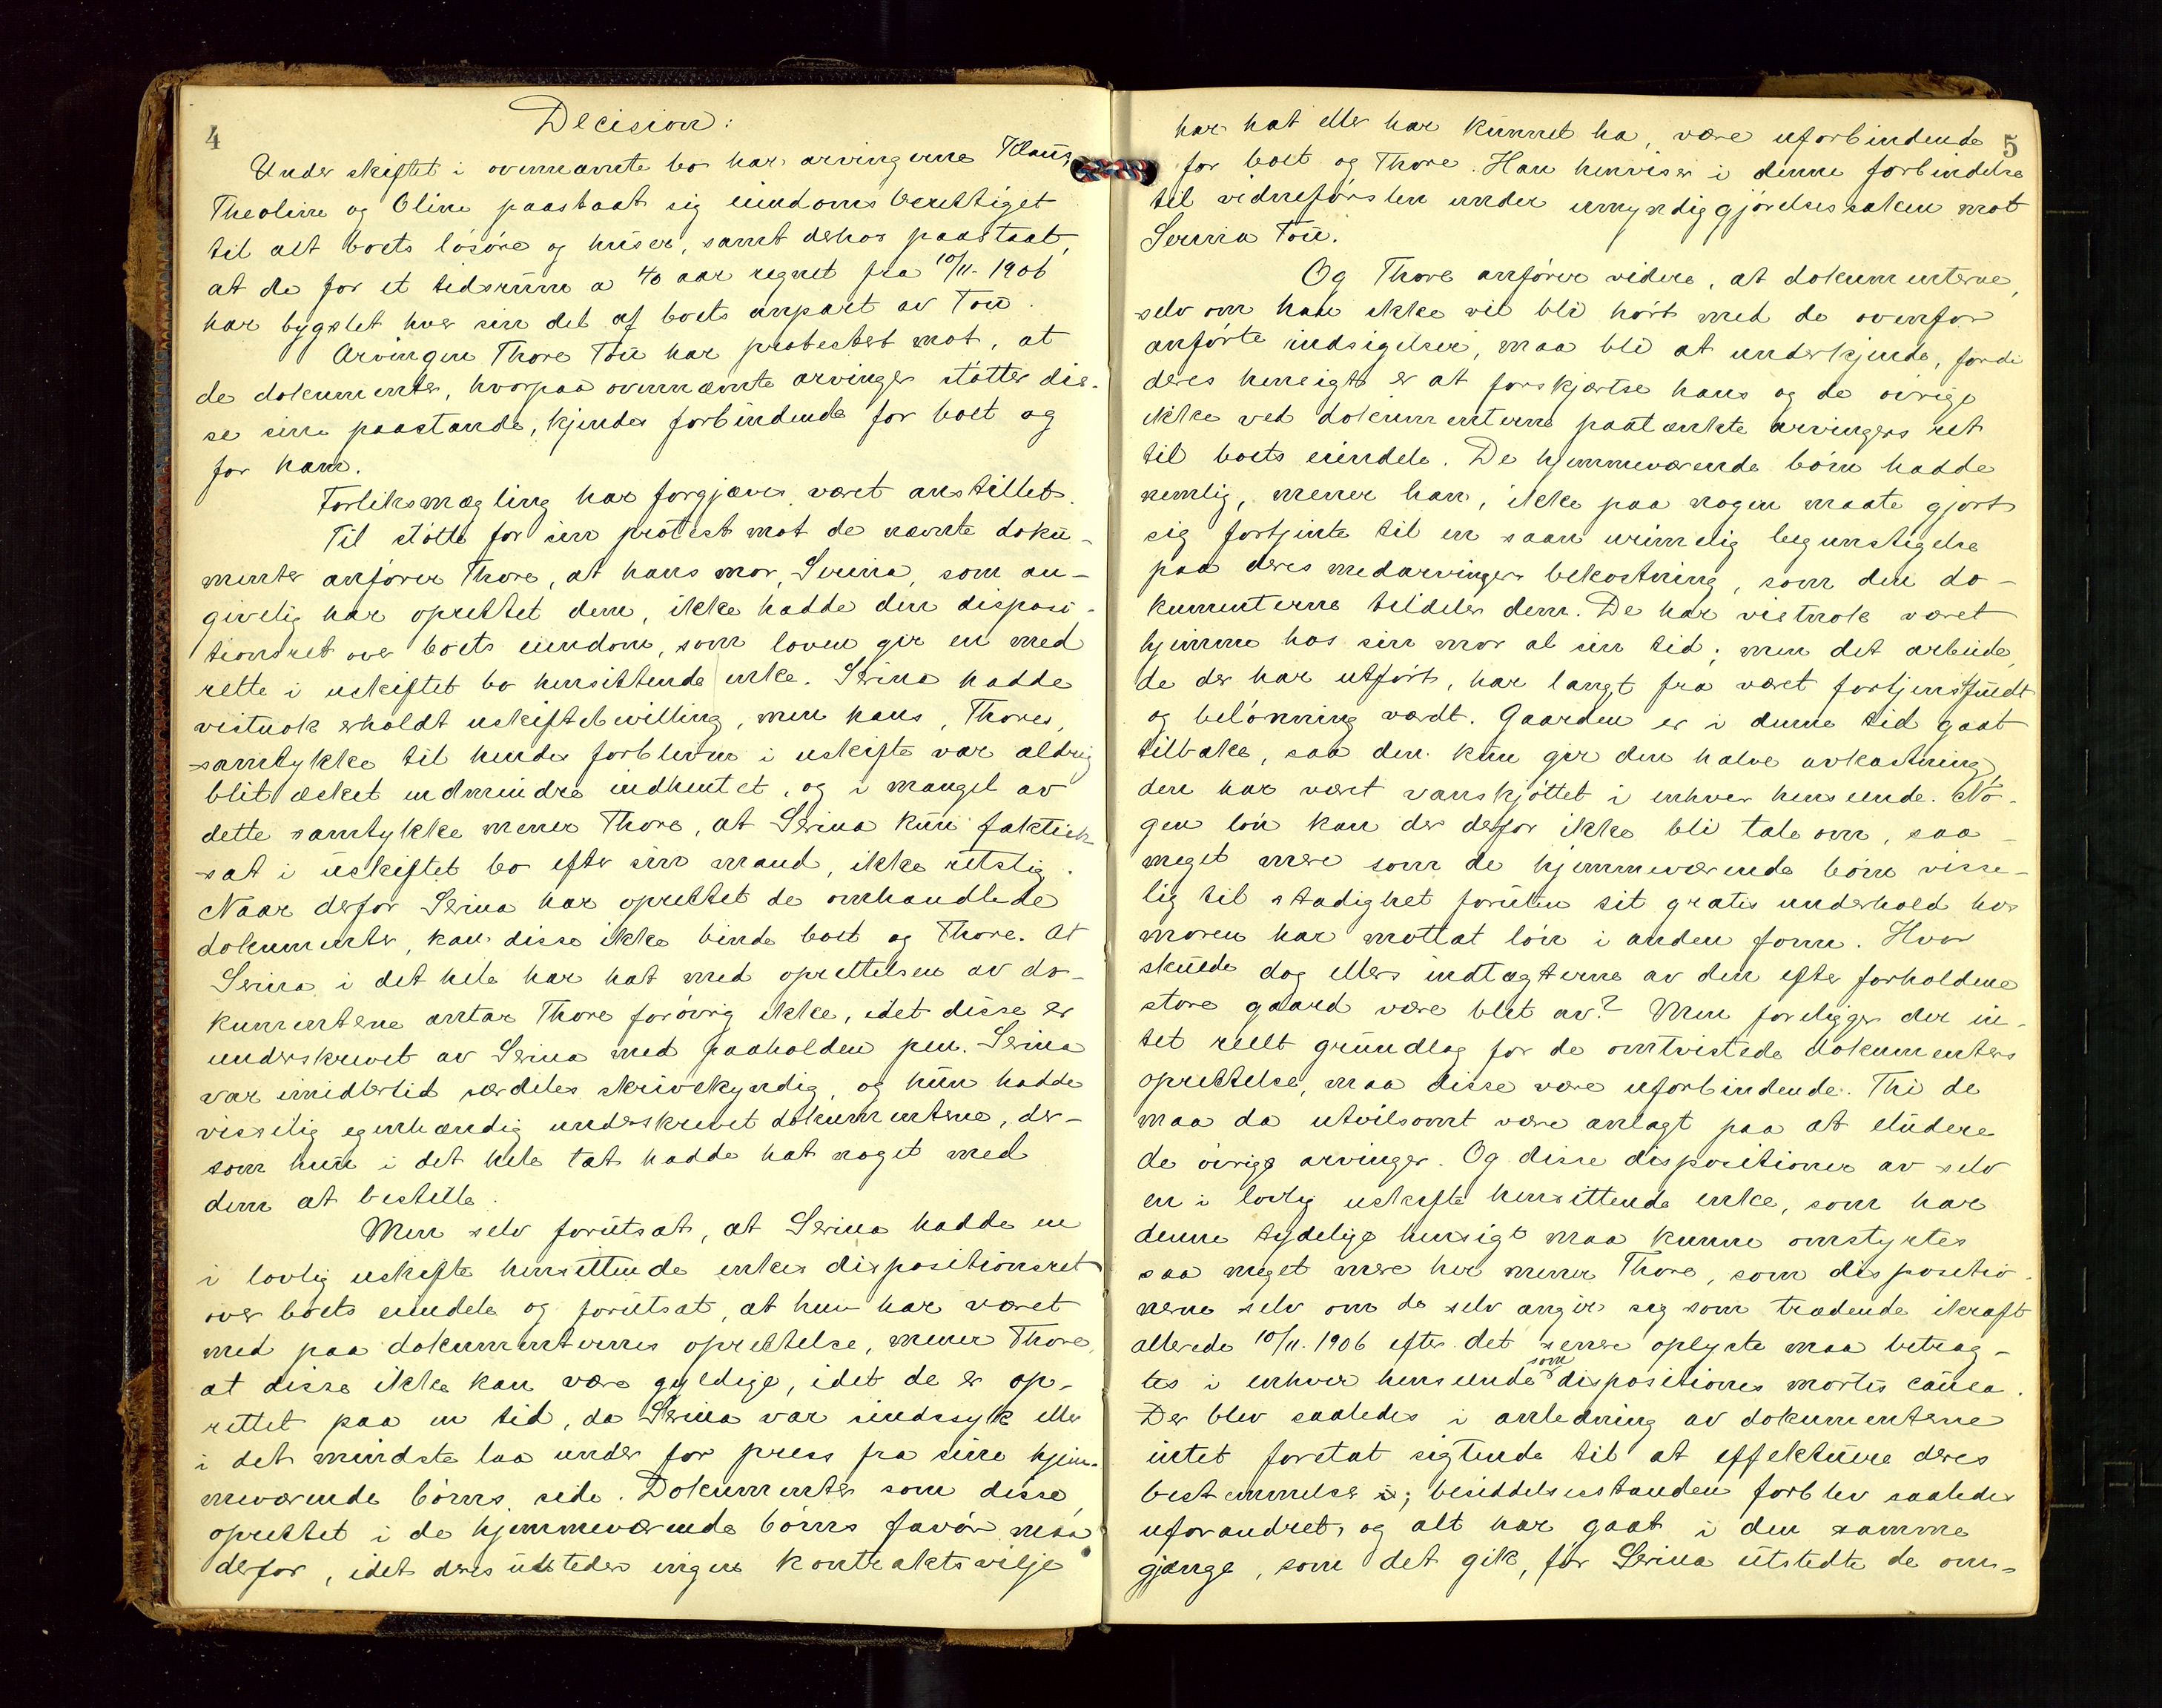 4
Decision:
Under skiftet i ovennævnte bo har arvingerne Klaus,
Theoline og Oline paastaat sig eiendomsberettiget
til alt boets løsøre og huser, samt derhos paastaat,
at de for et tidsrum a 40 aar regnet fra 10/11-1906
har bygslet hver sin del af boets anpart av Tou.
Arvingen Thore Tou har protestert mot, at
de dokumenter, hvorpaa ovennævnte arvinger støtter dis-
se sine paastande, kjendes forbindende for boet og
for ham.
Forliksmægling har forgjæves været anstillet.
Til støtte for sin protest mot de nævnte doku-
menter anfører Thore, at hans mor, Serina, som an-
givelig har oprettet dem, ikke hadde den disposi-
tionsret over boets eiendom, som loven gir en med
rette i uskiftet bo hensittende enke. Serina hadde
vistnok erholdt uskiftebevilling, men hans, Thores,
samtykke til hendes forbliven i uskifte var aldrig
blit æsket endmindre indhentet, og i mangel av
dette samtykke mener Thore, at Serina kun faktisk
sat i uskiftet bo efter sin mand, ikke retslig.
Naar derfor Serina har oprettet de omhandlede
dokumenter, kan disse ikke binde boet og Thore. At
Serina i det hele har hat med oprettelsen av do-
kumentene antar Thore forøvrig ikke, idet disse er
underskrevet av Serina med paaholden pen. Serina
var imidlertid særdeles skrivekyndig, og hun hadde
visselig egenhændig underskrevet dokumentene, der-
som hun i det hele tat hadde hat noget med
dem at bestille.
Men selv forutsat, at Serina hadde en
i lovlig uskifte hensittende enkes dispositionsret
over boets eiendele og forutsat, at hun har været
med paa dokumenternes oprettelse, mener Thore,
at disse ikke kan være gyldige, idet de er op-
rettet paa en tid, da Serina var sindssyk eller
i det mindste laa under for press fra sine hjem-
meværende børns side. Dokumenter som disse,
oprettet i de hjemmeværende børns favør maa
derfor, idet deres utsteder ingen kontraktsvilje
5
har hat eller har kunnet ha, være uforbindende
for boet og Thore. Han henviser i denne forbindelse
til vidneførslen under umyndiggjørelsessaken mot
Serina Tou.
Og Thore anfører videre, at dokumenterne,
selv om han ikke vil bli hørt med de ovenfor
anførte indsigelser, maa bli at underkjende, fordi
deres hensigt er at forskjærtse hans og de øvrige
ikke ved dokumenterne paatænkte arvingers ret
til boets eiendele. De hjemmeværende børn hadde
nemlig, mener han, ikke paa nogen maate gjort
sig fortjente til en saan urimelig begunstigelse
paa deres medarvingers bekostning, som den do-
kumenterne tildeler dem. De har vistnok været
hjemme hos sin mor al sin tid; men det arbeide,
de der har utført, har langt fra været fortjenstfuldt
og belønning værdt. Gaarden er i denne tid gaat
tilbake, saa den kun gir den halve avkastning,
den har været vanskjøttet i enhver henseende. No-
gen løn kan der derfor ikke bli tale om, saa
meget mere som de hjemmeværende børn visse-
lig til stadighet foruten sit gratis underhold hos
moren har mottat løn i anden form. Hvor
skulde dog ellers indtægterne av den efter forholdene
store gaard være blit av? Men foreligger der in-
tet reelt grundlag for de omtvistede dokumenters
oprettelse, maa disse være uforbindende. Thi de
maa da utvilsomt være anlagt paa at eludere
de øvrige arvinger. Og disse dispositioner av selv
en i lovlig uskifte hensittende enke, som har
denne tydelige hensigt maa kunne omstyrtes
saa meget mere her mener Thore, som dispositio-
nerne selv om de selv angir sig som trædende ikraft
allerede 10/11.1906 efter det senere oplyste maa betrag-
tes i enhver henseende som dispositiones mortis causa.
Der blev saaledes i anledning av dokumenterne
intet foretat sigtende til at effektuere deres
bestemmelser; besiddelsesstanden forblev saaledes
uforandret, og alt har gaat i den samme
gjænge, som det gik, før Serina utstedte de om-